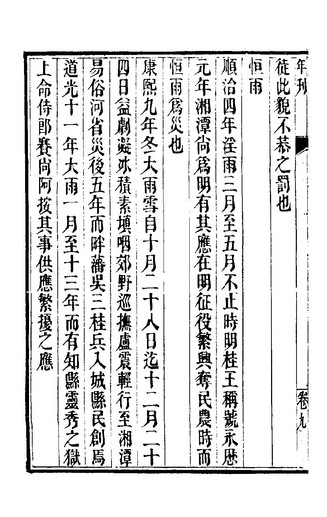 年刊
卷九
徒此貌不恭之罰也
恒雨
順治四年淫雨三月至五月不止時明桂王稱號永歷
元年湘潭尚爲明有其應在明征役繁興奪民農時而
恒雨爲災也
康熙九年冬大雨雪自十月二十八日迄十二月二十
四日益劇凝冰積素塡咽郊野巡撫盧震輕行至湘潭
易俗河省災後五年而畔藩吳三桂兵入城縣民創焉
道光十一年大雨一月至十三年而有知縣靈秀之獄
上命侍郎賽尚阿按其事供應繁擾之應